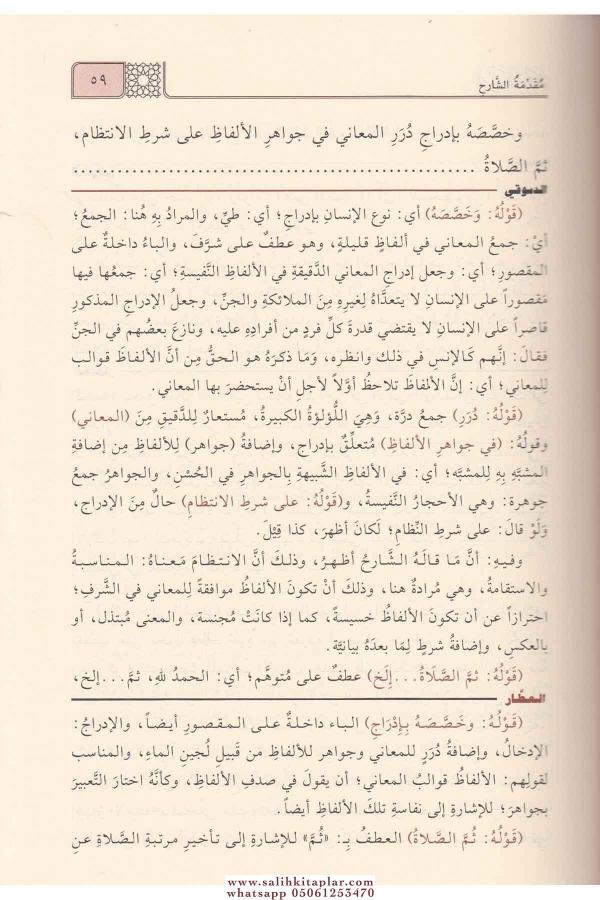 مُقَدِّمَةُ الشَّارِحِ
٥٩
وخصَّصَهُ بإدراجِ دُرَرِ المعاني في جواهرِ الألفاظِ على شرطِ الانتظام،
ثمَّ الصَّلاةُ ......................................................
الدسوقي
(قَوْلُهُ: وَخَصَّصَهُ) أي: نوع الإنسانِ بإدراجِ؛ أي: طيِّ، والمرادُ بِهِ هُنا: الجمعُ؛
أيْ: جمعُ المعاني في ألفاظٍ قليلةٍ، وهو عطفٌ على شرَّفَ، والباءُ داخلةٌ على
المقصورِ؛ أي: وجعل إدراجِ المعاني الدَّقيقةِ في الألفاظِ النَّفيسةِ؛ أي: جمعُها فيها
مَقصوراً على الإنسانِ لا يتعدَّاهُ لِغيرِهِ مِنَ الملائكةِ والجنِّ، وجعلُ الإدراجِ المذكورِ
قاصراً على الإنسانِ لا يقتضي قدرةَ كلِّ فردٍ من أفرادِهِ عليه، ونازعَ بعضُهم في الجنِّ
فقالَ: إنَّهم كَالإنسِ في ذلك وانظره، وَمَا ذكرَهُ هو الحقُّ مِن أنَّ الألفاظَ قوالب
لِلمعاني؛ أي: إنَّ الألفاظَ تلاحظُ أوَّلاً لأجلِ أنْ يستحضرَ بها المعاني.
(قَوْلُهُ: دُرَرِ) جمعُ درَّة، وَهِيَ اللُّؤلؤةُ الكبيرةُ، مُستعارٌ لِلدَّقيقِ مِنَ (المعاني)
وقولُهُ: (في جواهرِ الألفاظِ) مُتعلِّقٌ بإدراج، وإضافةُ (جواهر) لِلألفاظِ مِن إضافةِ
المشبَّهِ بِهِ لِلمشبَّه؛ أي: في الألفاظِ الشَّبيهةِ بِالجواهرِ في الحُسْنِ، والجواهرُ جمعُ
جوهرة: وهي الأحجارُ النَّفيسةُ، و(قَوْلُهُ: على شرطِ الانتظامِ) حالٌ مِنَ الإدراج،
وَلَوْ قالَ: على شرطِ النِّظامِ؛ لَكانَ أظهرَ، كذا قِيْلَ.
وفيهِ: أنَّ مَا قالَهُ الشَّارحُ أظهرُ، وذلكَ أنَّ الانتظامَ مَعناهُ: المناسبةُ
والاستقامةُ، وهي مُرادةٌ هنا، وذلكَ أنْ تكونَ الألفاظُ موافقةً لِلمعاني في الشَّرفِ؛
احترازاً عن أن تكونَ الألفاظُ خسيسةً، كما إذا كانَتْ مُجنسة، والمعنى مُبتذل، أو
بالعكسِ، وإضافةُ شرطٍ لِمَا بعدَهُ بيانيَّة.
(قَوْلُهُ: ثمَّ الصَّلَاةُ...إلَخ) عطفٌ على مُتوهَّم؛ أي: الحمدُ للهِ، ثمَّ...إلخ،
العطَّار
(قَوْلُهُ: وخصَّصَهُ بِإِدْرَاجِ) الباء داخلةٌ على المقصورِ أيضاً، والإدراجُ:
الإدخالُ، وإضافةُ دُرَرٍ للمعاني وجواهر للألفاظِ من قبيلِ لُجينِ الماءِ، والمناسب
لقولِهم: الألفاظُ قوالبُ المعاني؛ أن يقولَ في صدفِ الألفاظِ، وكأنَّهُ اختارَ التَّعبيرَ
بجواهرَ؛ للإشارةِ إلى نفاسةِ تلكَ الألفاظِ أيضاً.
(قَوْلُهُ: ثُمَّ الصَّلاةُ) العطفُ بِـ: «ثُمَّ» للإشارةِ إلى تأخيرِ مرتبةِ الصَّلاةِ عنِ
www.salihkitaplar.com
whatsapp 05061253470